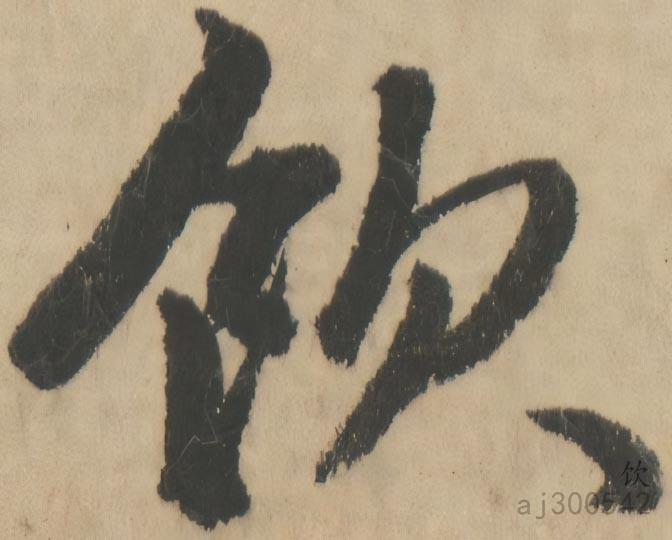 饮
饮
aj300542